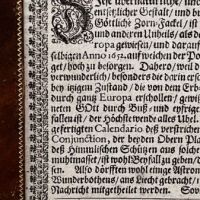 Diese übernatürliche, m
entsetzliche Gestalt / und bi
Göttliche Zorn-Fackel / ist
und andern Unheils / als de
ropa gewiesen / und darauf
seligen Anno 1652. auf weichen der Po
get / hoch zu besorgen. Daher / weil d
verwunderlich / besonders die darin ersc
bey itzigem Zustand / die von dem Erb
durch gantz Europa erschollen / gewis
neten GOtt durch Buß und eyfrige
fallen ist / der Höchste wende alles Ubel.
gefertigten Calendario deß verstrichen
Conjunction, der beyden Obern Pla
deß Himmlischen Schützen aus solche
muthmasset / ist wohl Beyfall zu geben / d
sen.
Also dörfften wohl einige Astrono
Wunderbothens / aus Hecht gebracht / u
Nachricht mitgetheilet werden. Sov